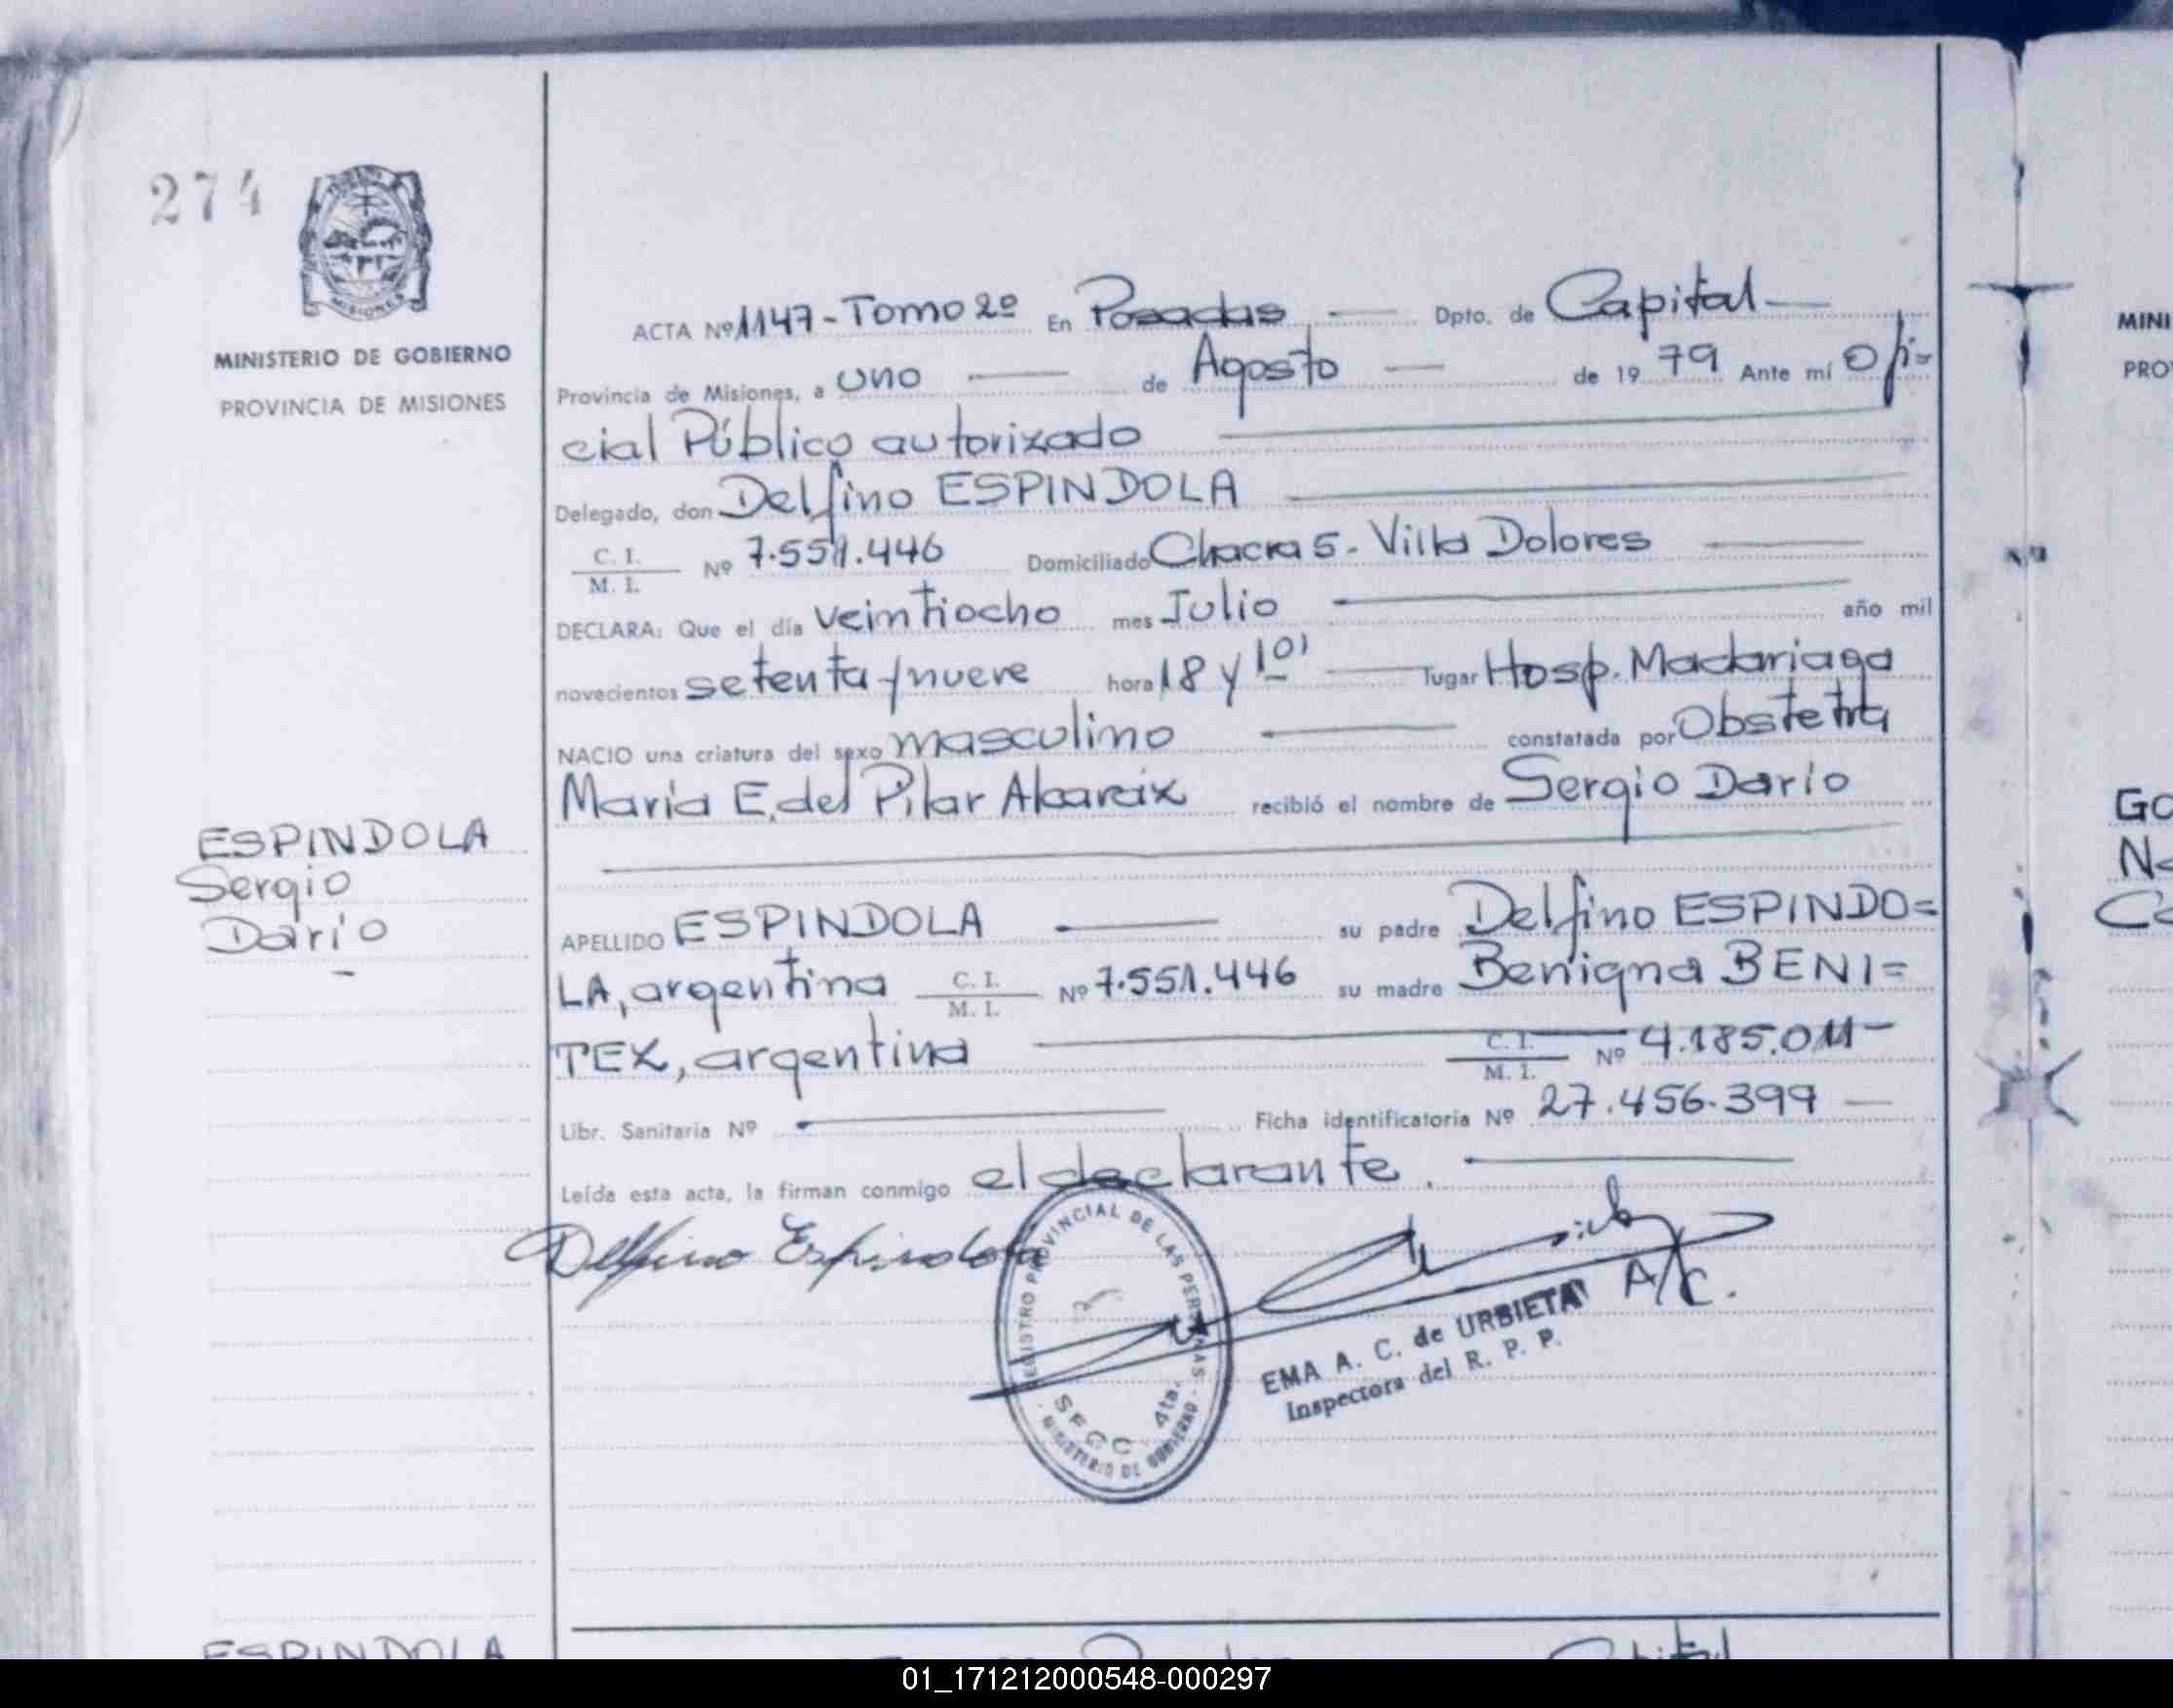 274
MISIONES
MINISTERIO DE GOBIERNO
PROVINCIA DE MISIONES
ESPINDOLA
Sergio
Darío
ACTA Nº 1147 - Tomo 2º En Posadas Dpto. de Capital
Provincia de Misiones, a uno de Agosto de 1979 Ante mí Ofi=
cial Público autorizado
Delegado, don Delfino ESPINDOLA
C. I.
M. I.
Nº 7.551.446 Domiciliado Chacra 5 - Villa Dolores
DECLARA: Que el día veintiocho mes Julio año mil
novecientos setenta y nueve hora 18 y 10' lugar Hosp. Madariaga
NACIO una criatura del sexo masculino constatada por Obstetra
María E. del Pilar Alcaráz recibió el nombre de Sergio Darío
APELLIDO ESPINDOLA su padre Delfino ESPINDO=
LA, argentina C. I. M. I. Nº 7.551.446 su madre Benigna BENI=
TEZ, argentina C. I. M. I. Nº 4.185.011-
Libr. Sanitaria Nº Ficha identificatoria Nº 27.456.399
Leída esta acta, la firman conmigo el declarante.
Delfino Espindola
REGISTRO PROVINCIAL DE LAS PERSONAS
4ta.
MINISTERIO DE GOBIERNO
A/C.
EMA A. C. de URBIETA
Inspectora del R. P. P.
ESPINDOLA
Capital
MINI
PRO
GO
01_171212000548-000297